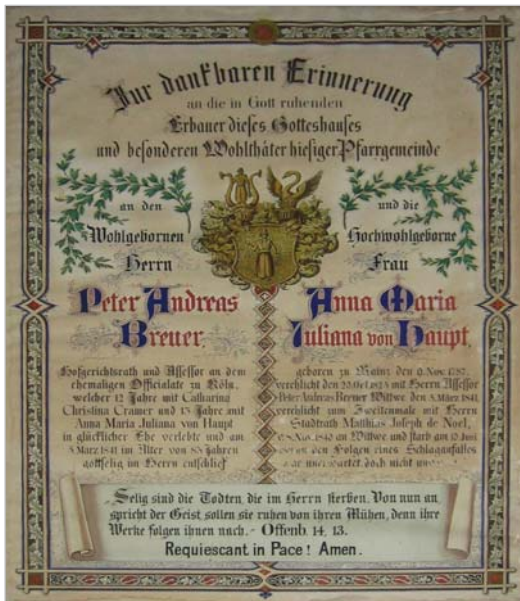 Zur dankbaren Erinnerung
an die in Gott ruhenden
Erbauer dieses Gotteshauses
und besonderen Wohlthäter hiesiger Pfarrgemeinde
an den
Wohlgebornen
Herrn
Peter Andreas
Breuer,
Hofgerichtsrath und Assessor an dem
ehemaligen Officialate zu Köln,
welcher 12 Jahre mit Catharina
Christina Cramer und 13 Jahre mit
Anna Maria Juliana von Haupt
in glücklicher Ehe verlebte und am
März 1841 im Alter von Jahren
gottselig im Herrn entschlief
und die
Hochwohlgeborne
Frau
Anna Maria
Juliana von Haupt,
geboren zu Mainz den Nov.
verehlicht den Oct. mit Herrn Assessor
Peter Andreas Breuer Wittwe den März 1841
verehlicht zum Zweitenmale mit Herrn
Stadtrath Matthias Joseph de Noel,
Nov. 1849 an Wittwe und starb am
an den Folgen eines Schlaganfalles
doch nicht
Selig sind die Todten die im Herrn sterben. Von nun an
spricht der Geist sollen sie ruhen von ihren Mühen, denn ihre
Werke folgen ihnen nach. - Offenb. 14, 13.
Requiescant in Pace! Amen.